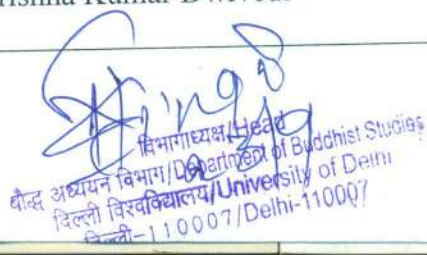 Krishna Kumar Dwivedi
विभागाध्यक्ष/Head
बौद्ध अध्ययन विभाग/Department of Buddhist Studies
दिल्ली विश्वविद्यालय/University of Delhi
दिल्ली-110007/Delhi-110007